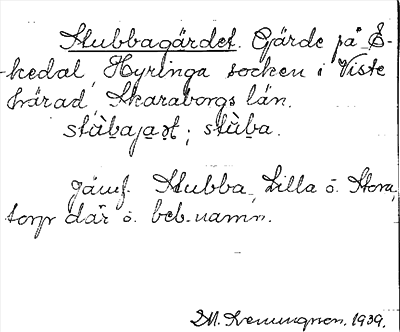 Stubbagärdet. Gärde på E-
kedal, Hyringa socken i Viste
härad, Skaraborgs län.
stùbajaʈ; stùba.
Jämf. Stubba, Lilla o. Stora,
torp där o. beb.namn.
1939.